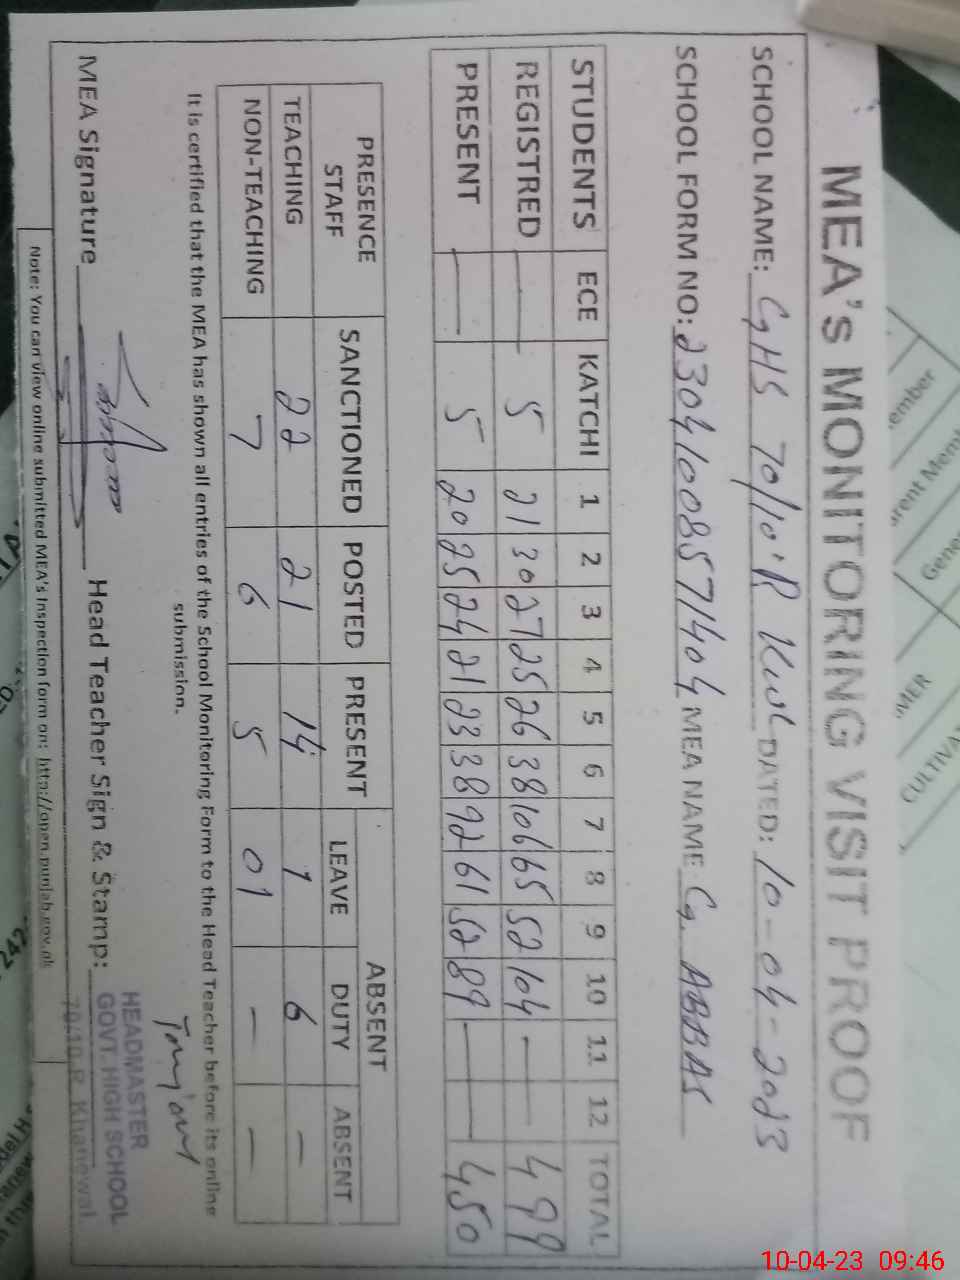 MEA's MONITORING VISIT PROOF
SCHOOL NAME: GHS 70/10·R Kwl DATED: 10-04-2023
SCHOOL FORM NO: 23041008571404 MEA NAME G. ABBAS
STUDENTS ECE KATCHI 1 2 3 4 5 6 7 8 9 10 11 12 TOTAL
REGISTRED — 5 21 30 27 25 26 38 106 65 52 104 — 499
PRESENT — 5 20 25 24 21 23 38 92 61 52 89 — 450
PRESENCE STAFF SANCTIONED POSTED PRESENT ABSENT
LEAVE DUTY ABSENT
TEACHING 22 21 14 1 6 —
NON-TEACHING 7 6 5 01 — —
It is certified that the MEA has shown all entries of the School Monitoring Form to the Head Teacher before its online
submission.
MEA Signature Head Teacher Sign & Stamp:
HEADMASTER
GOVT. HIGH SCHOOL
70/10-R Khanewal
Note: You can view online submitted MEA's Inspection form on: http://open.punjab.gov.pk
ember
arent Memb
Gene
CULTIVA
242
10-04-23 09:46